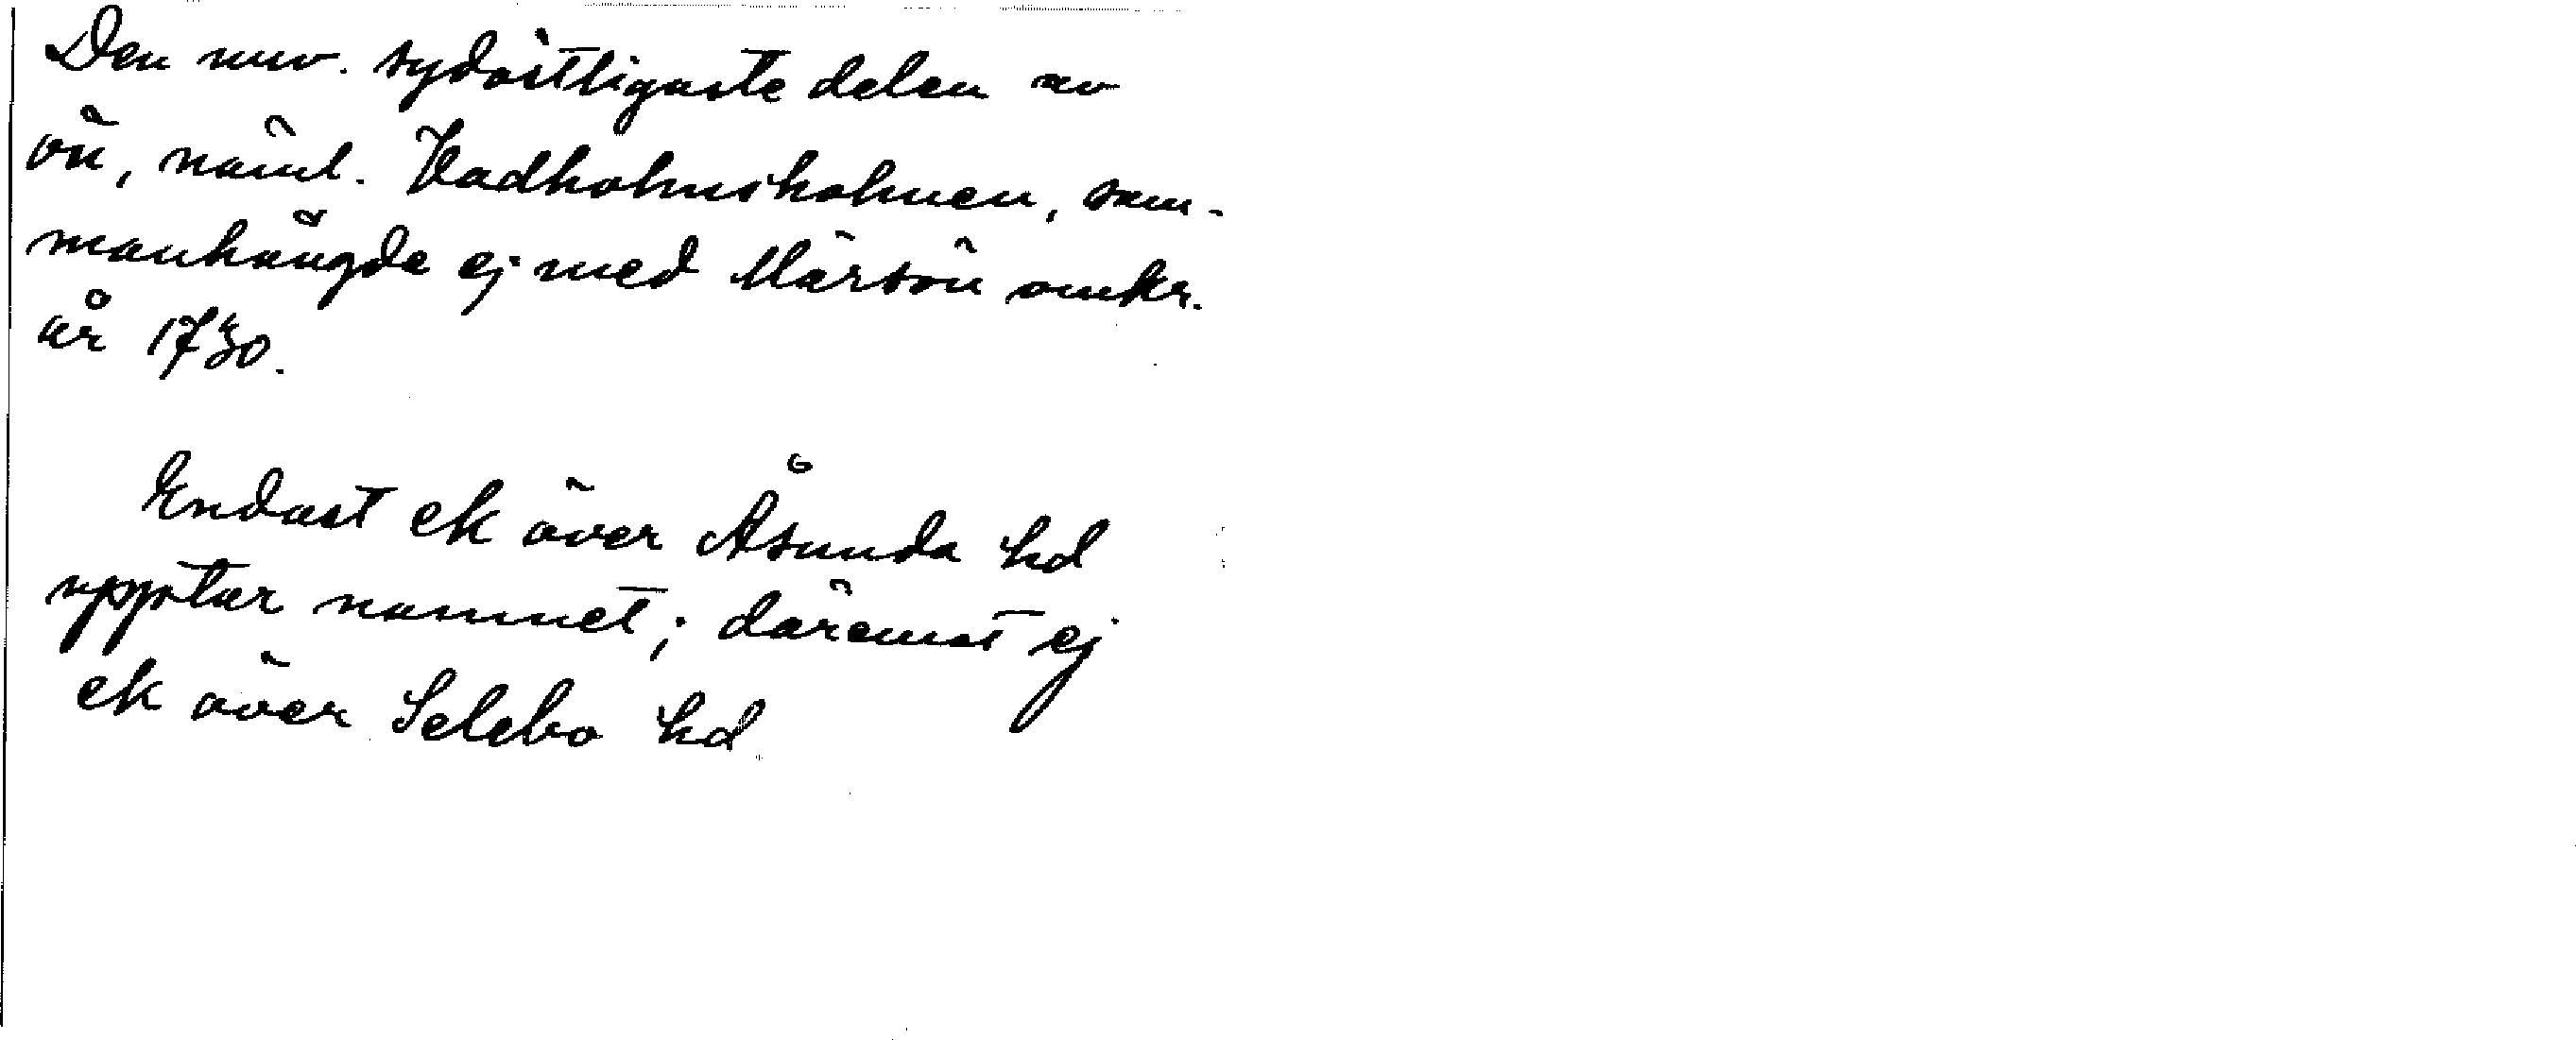 Den nuv. sydöstligaste delen av
ön, näml. Vadholmsholmen, sam-
manhängde ej med Märsön omkr.
år 1730.
Endast ek över Åsunda hd
upptar namnet; däremot ej
ek över Selebo hd